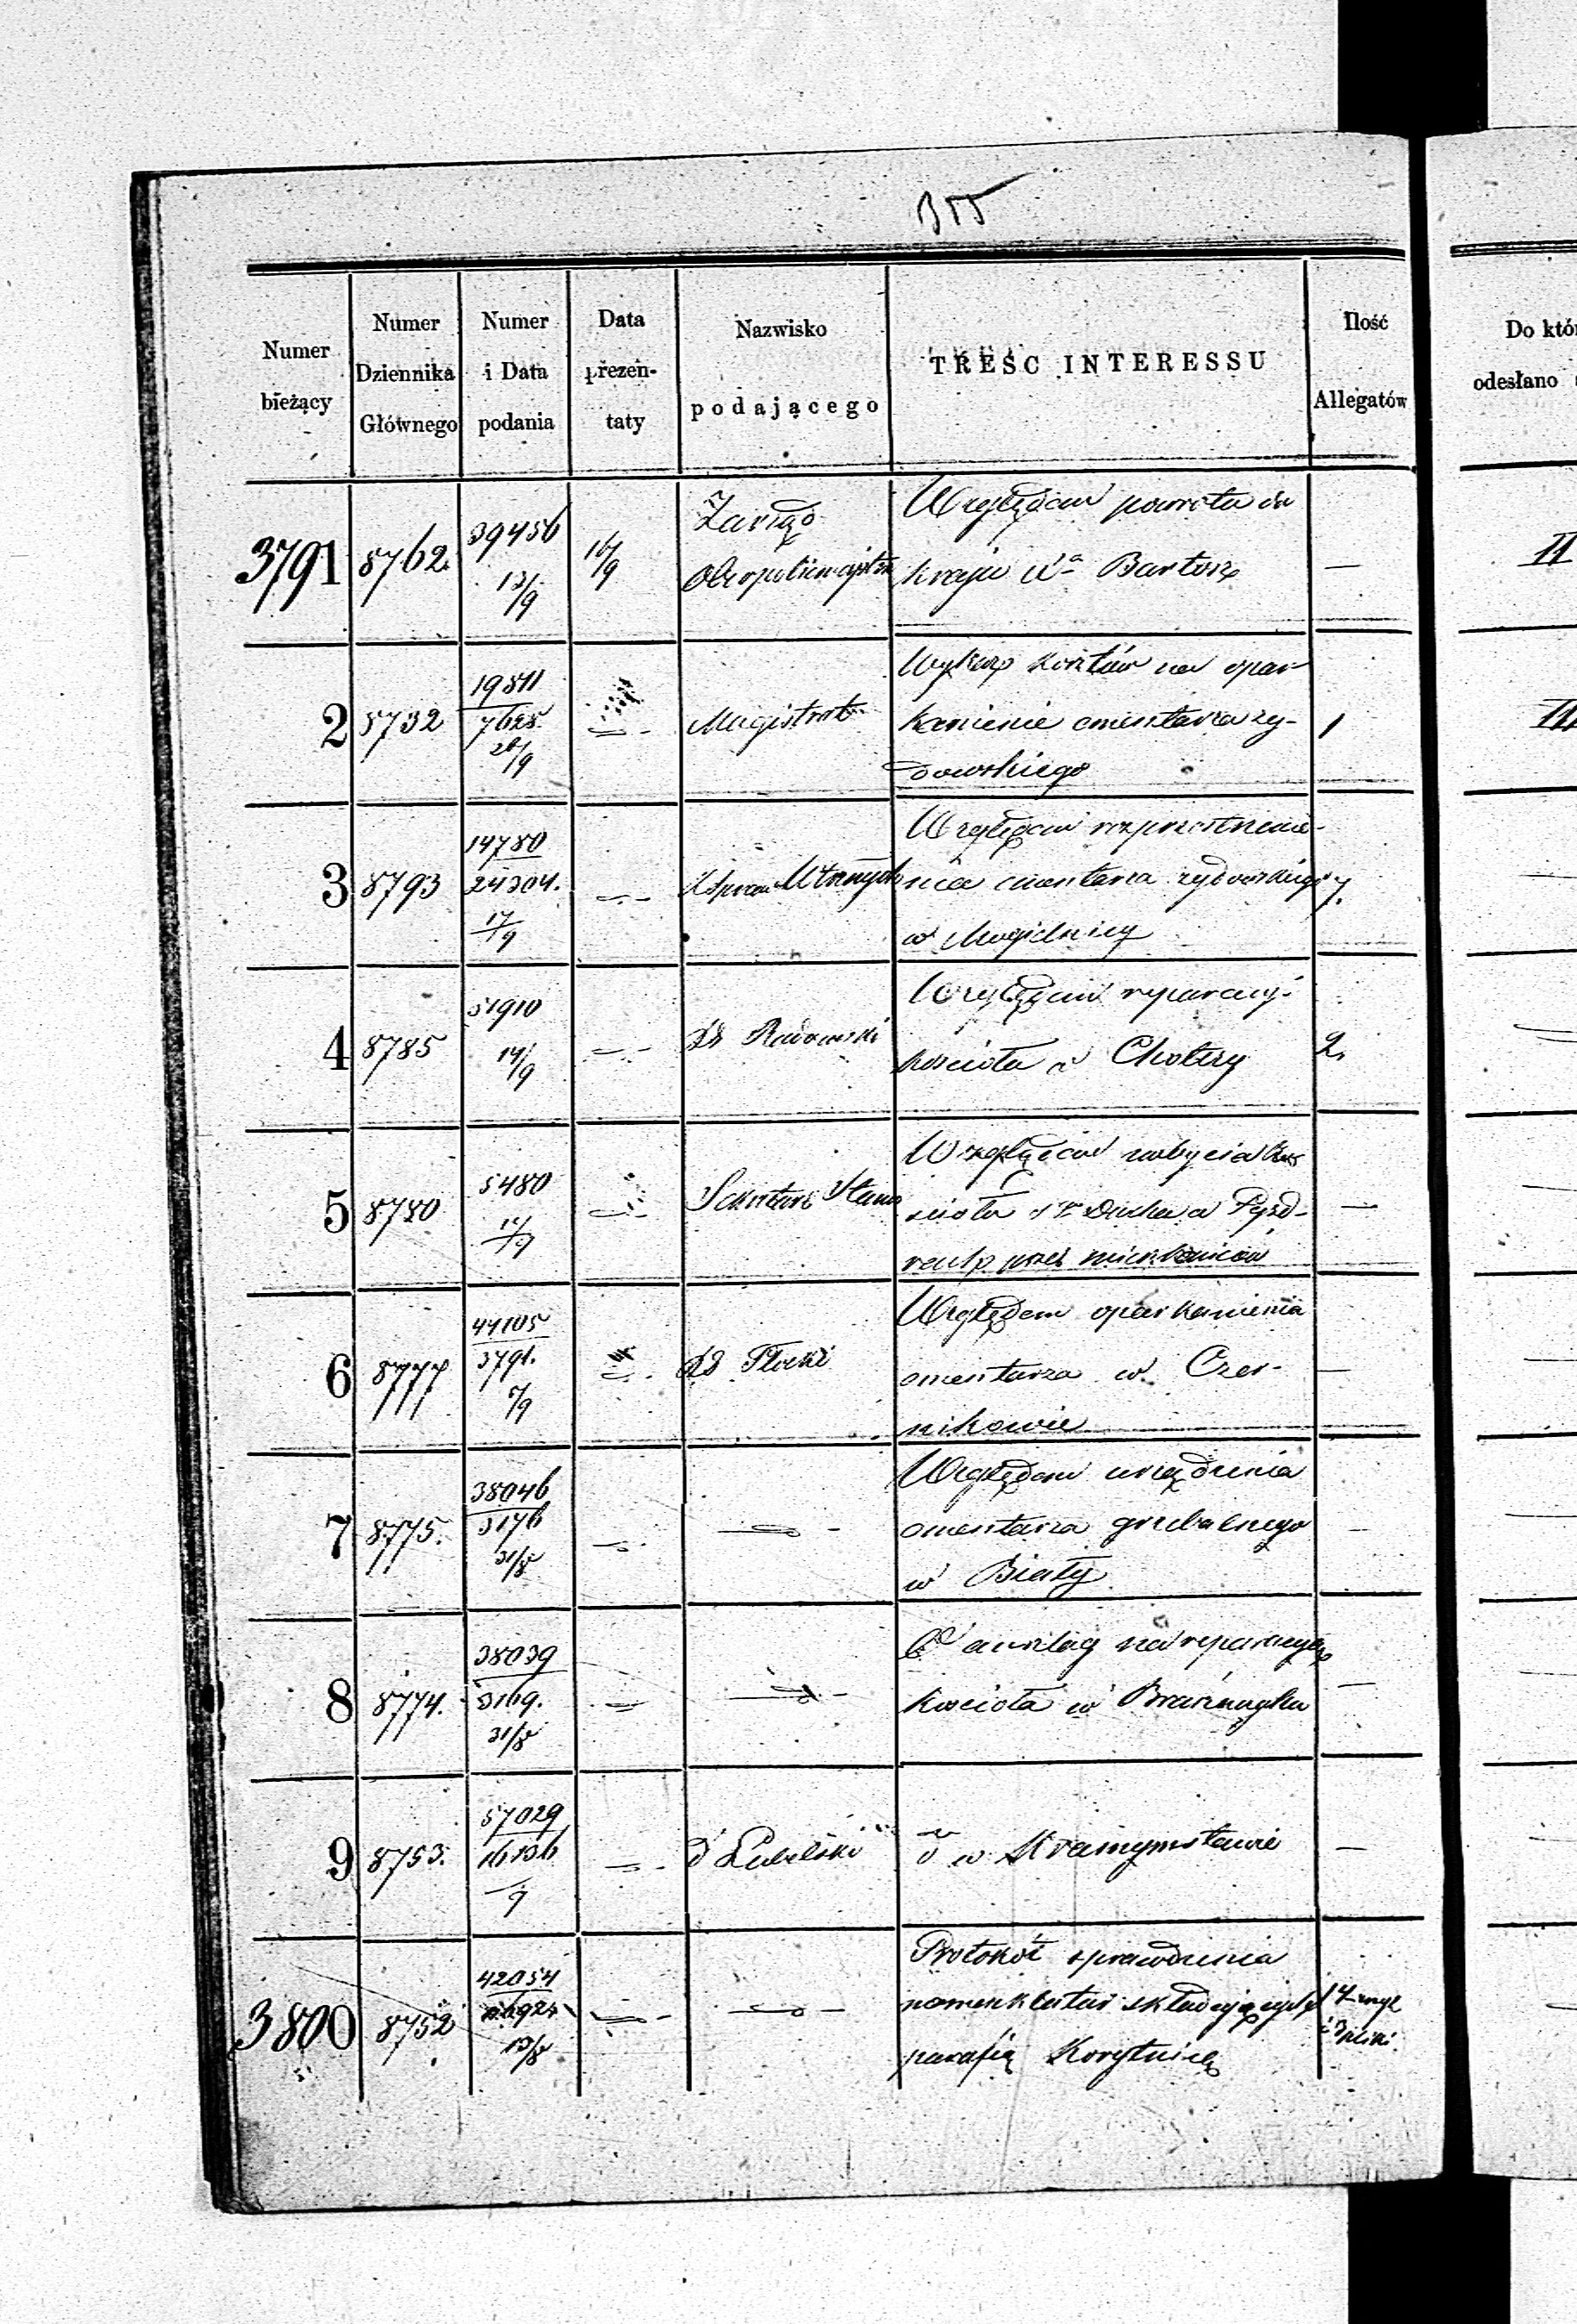 355
Numer bieżący
Numer Dziennika Głównego
Numer i Data podania
Data prezentaty
Nazwisko podającego
TREŚĆ INTERESSU
Ilość Allegatów
Do któr
odesłano
3791 8762 39456 13/9 16/9
Zarząd
Oberpolicmajstra
Względem powrotu do
kraju Bartosz
—
II
2 8732 19811 7625 26/9
Magistrat
Wykaz kosztów na opar-
kanienie cmentarza ży-
dowskiego
1
3 8793 14780 24304. 17/9
Spraw Wewnętrznych
Względem rozprzestrzenie-
nia cmentarza żydowskiego
w Mogielnicy
7.
4 8785 51910 14/9
Radomski
Względem reparacyi
kościoła w
2.
5 8780 5480
Sekretarz Stanu
Względem nabycia koś
cioła Sgo Ducha w Pyzd-
rach przez mieszkańców
—
6 8777 44105 3791. 7/9
Płocki
Względem oparkanienia
cmentarza w Czer-
nikowie
—
7 8775. 38046 3176 31/8
Względem urządzenia
cmentarza grzebalnego
w Biały
—
8 8774. 38039 3169. 31/8
anszlag na reparacyą
kościoła w Przasnyszu
—
9 8753. 57029 16136 /9
d Lubelski
d w Krasnymstawie
—
3800 8752 42054 13/8
Protokół sprawdzenia
nomenklatur składających
parafią Korytnicę